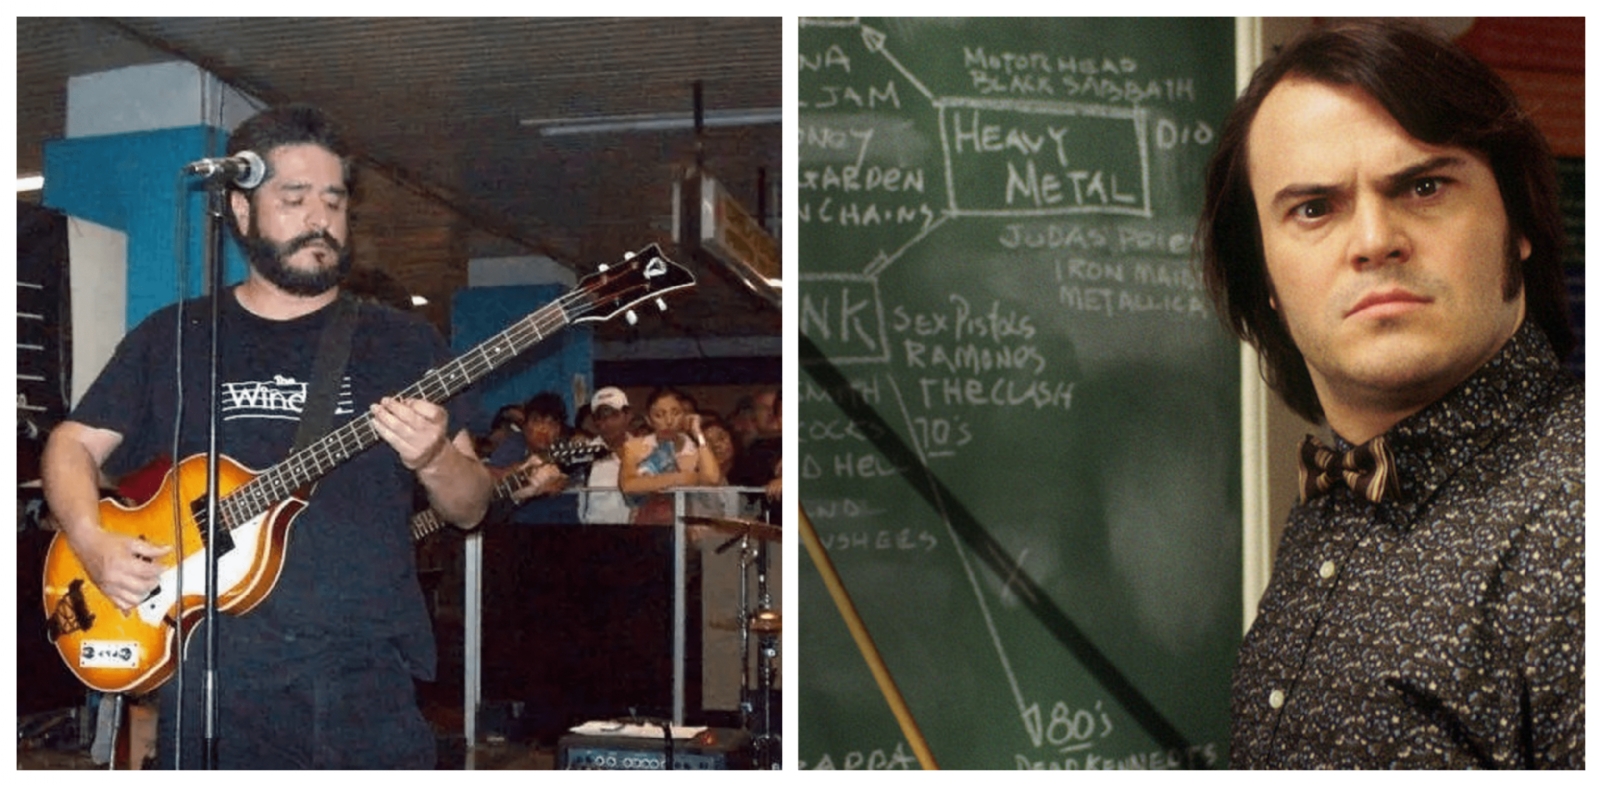 The
Wind
NA
JAM
GARDEN
NCHAINS
MOTORHEAD
BLACK SABBATH
HEAVY
METAL
DIO
JUDAS PRIE
IRON MAID
METALLICA
NK
SEX PISTOLS
RAMONES
THE CLASH
70's
MITH
COCKS
D HELL
NDL
NSHEES
80's
ZAPPA
DEAD KENNEDYS